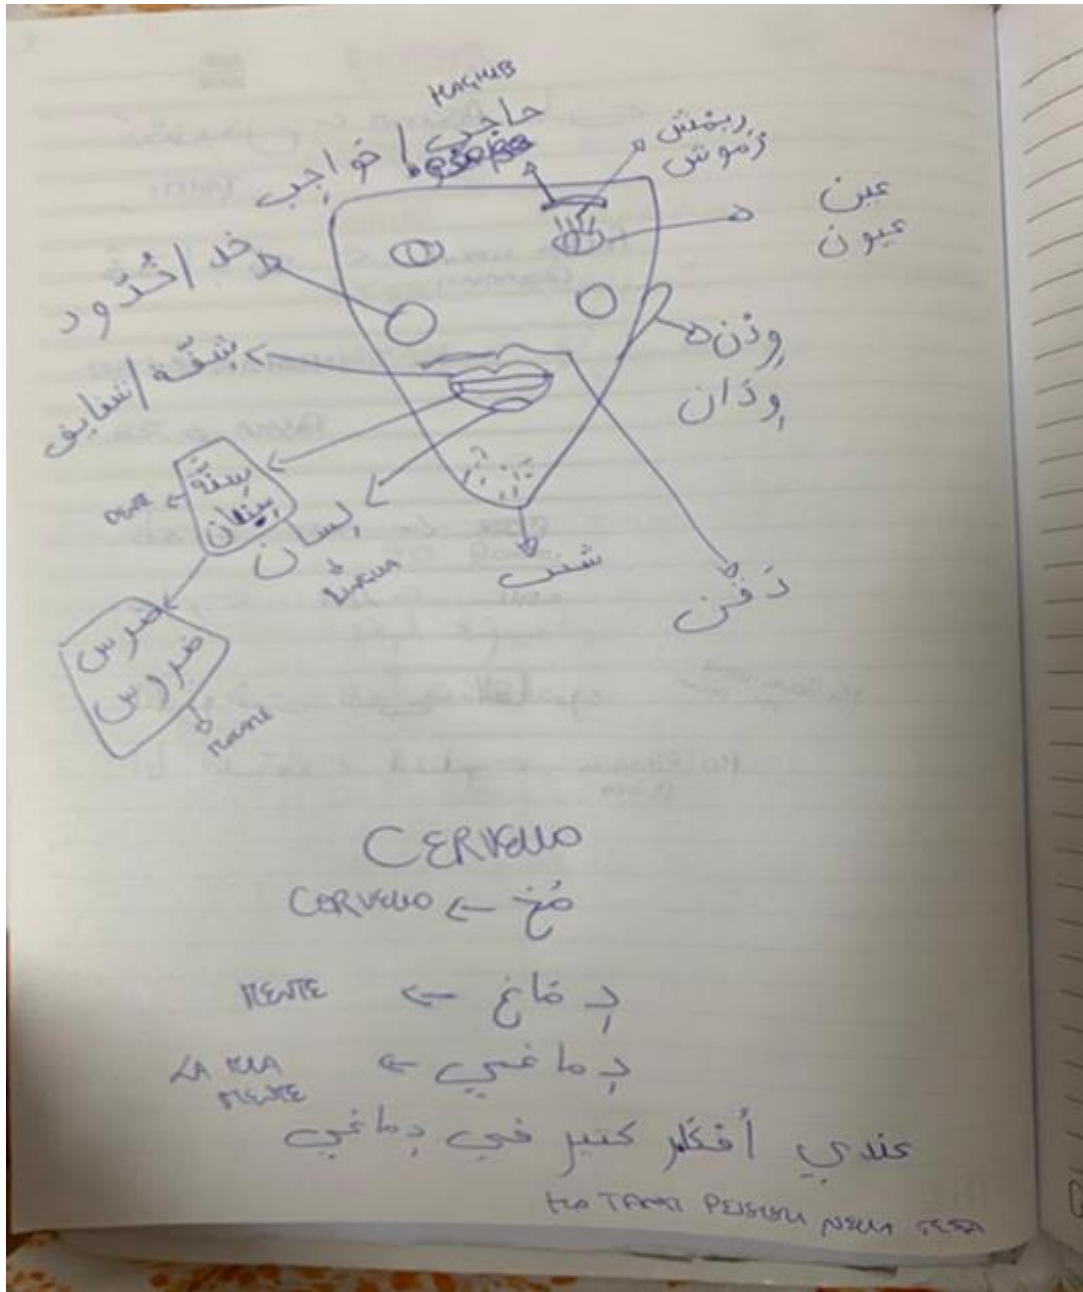 MAGHEB
حاجب / خواجب
رِمش
رموش
عين
عيون
خد / خُدّود
وِذن
وِذان
شفّة / شفايف
سِنّة
سِنان
DENTE
لِسان
LINGUA
شنب
دَقن
ضرس
ضروس
CERVELLO
مُخ ← CERVELLO
دِماغ ← MENTE
دِماغي ← LA MIA MENTE
عندي أفكار كتير في دِماغي
HO TANTI PENSIERI NELLA TESTA